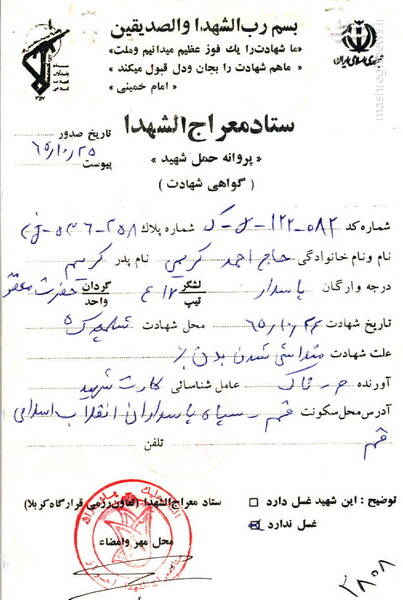 بسم رب الشهدا والصدیقین
«ما شهادت را یك فوز عظیم میدانیم وملت»
« ماهم شهادت را بجان ودل قبول میکند »
« امام خمینی »
جمهوری اسلامی ایران
ستاد معراج الشهدا
تاریخ صدور ۶۵/۱۰/۲۵
« پروانه حمل شهید »
پیوست
( گواهی شهادت )
شماره کد ۰۸۲-۱۲۲ شماره پلاك
نام ونام خانوادگی حاج احمد کریمی نام پدر کریم
درجه وارگان پاسدار لشگر ۱۷ ع گردان حضرت
تیپ واحد
تاریخ شهادت ۶۵/۱۰/۲۴ محل شهادت شلمچه
علت شهادت متلاشی شدن بدن
آورنده عامل شناسائی کارت شهید
آدرس محل سکونت قم - سپاه پاسداران انقلاب اسلامی
قم تلفن
توضیح : این شهید غسل دارد □ ستاد معراج الشهدا (تعاون رزمی قرارگاه کربلا)
غسل ندارد ☑
محل مهر وامضاء
۳۸۰۸
mashreghnews.ir